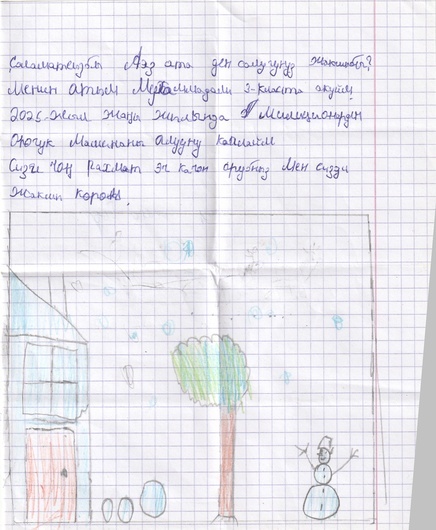 Саламатсызбы Аяз ата ден солугуңуз жакшыбы?
Менин атым Мухаммадали 3-класста окуйм
2025-жыл жаңы жылында Милиционерден
Оюнчук Машинаны алууну каалайм
Сизге Чоң рахмат эч качан оорубаңыз Мен сизди
Жакшы көрөм.